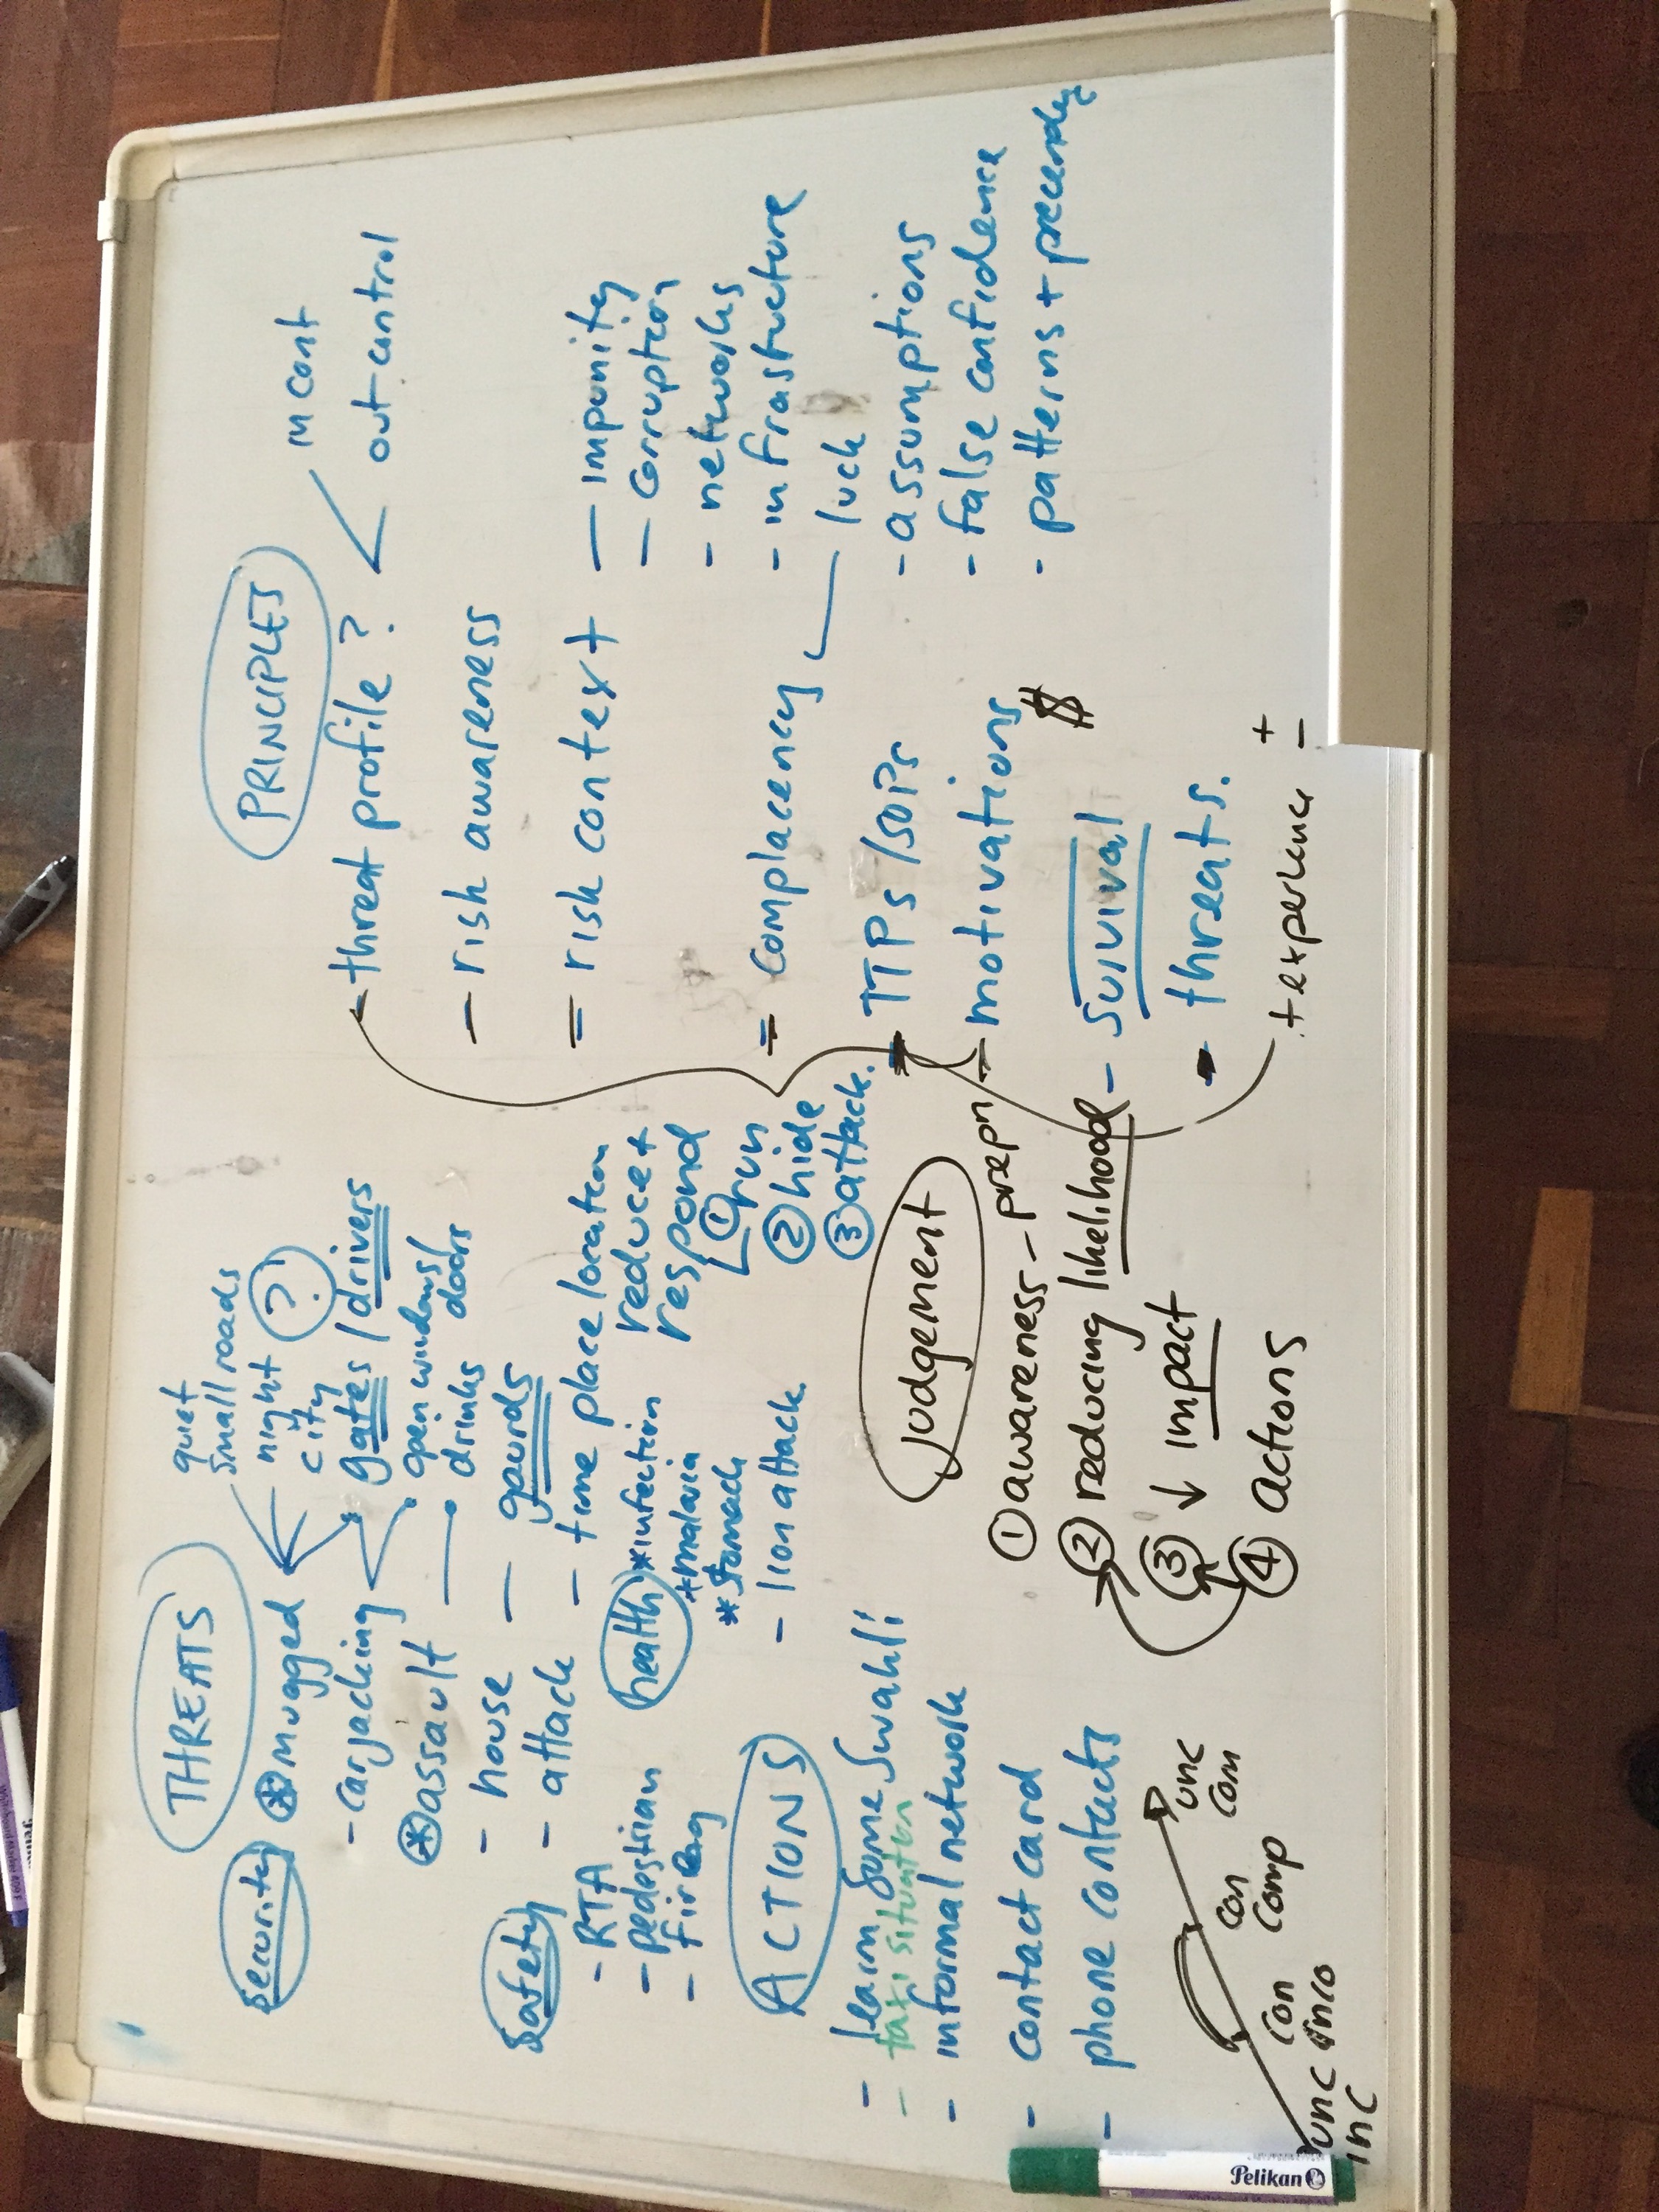 THREATS
security
⊛ mugged
quiet
small roads
night
city
?
- carjacking
gates / drivers
open windows/
doors
⊛ assault
drinks
- house — gaurds
- attack - time place location
Safety
- RTA
- pedestrian
- fire
health
* infection
* malaria
* stomach
reduce +
respond
① run
② hide
③ attack.
- lion attack.
ACTIONS
- learn some Swahili
- taxi situation
- informal network
- contact card
- phone contacts
unc
inc
con
inco
con
comp
unc
com
PRINCIPLES
- threat profile?
in cont
out-control
- risk awareness
= risk context
— impunity
- corruption
- networks
- infrastructure
= complacency
luck
- assumptions
- false confidence
- patterns + precendy
- TTPs /SOPs
- motivations
$
- survival
- threats.
+ experience + -
Judgement
① awareness - prepn
② reducing likelihood
③ ↓ impact
④ actions
Pelikan